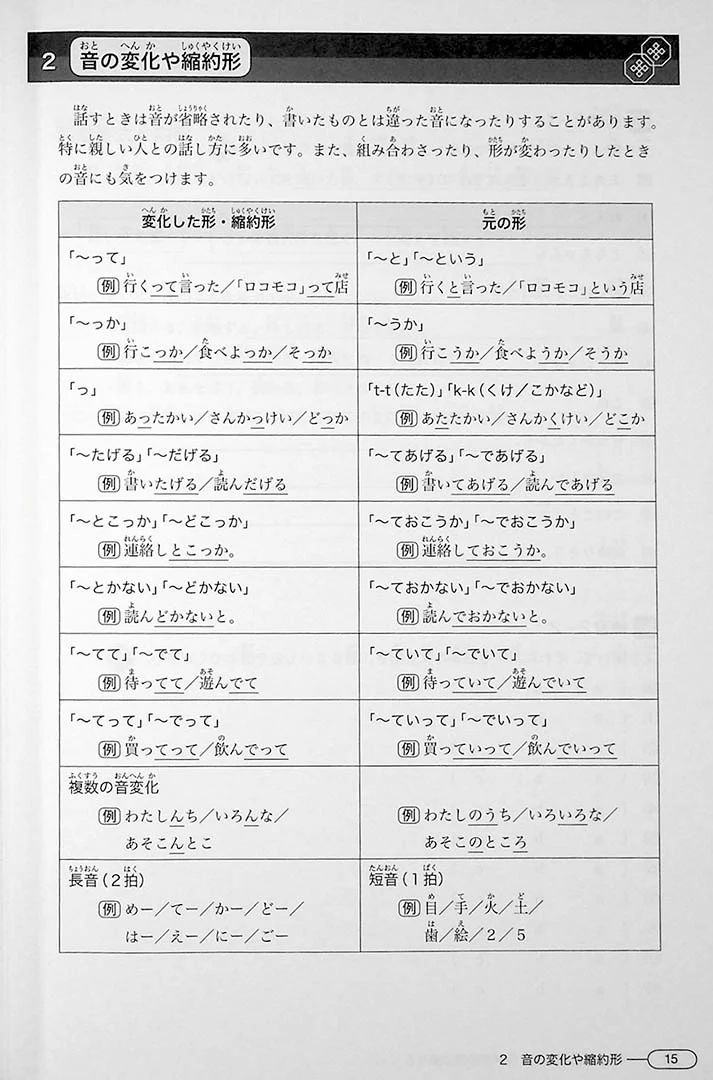 2 音の変化や縮約形
話すときは音が省略されたり、書いたものとは違った音になったりすることがあります。
特に親しい人との話し方に多いです。また、組み合わさったり、形が変わったりしたとき
の音にも気をつけます。
変化した形・縮約形 元の形
「～って」 「～と」「～という」
例 行くって言った／「ロコモコ」って店 例 行くと言った／「ロコモコ」という店
「～っか」 「～うか」
例 行こっか／食べよっか／そっか 例 行こうか／食べようか／そうか
「っ」 「t-t（たた）」「k-k（くけ／こかなど）」
例 あったかい／さんかっけい／どっか 例 あたたかい／さんかくけい／どこか
「～たげる」「～だげる」 「～てあげる」「～であげる」
例 書いたげる／読んだげる 例 書いてあげる／読んであげる
「～とこっか」「～どこっか」 「～ておこうか」「～でおこうか」
例 連絡しとこっか。 例 連絡しておこうか。
「～とかない」「～どかない」 「～ておかない」「～でおかない」
例 読んどかないと。 例 読んでおかないと。
「～てて」「～でて」 「～ていて」「～でいて」
例 待ってて／遊んでて 例 待っていて／遊んでいて
「～てって」「～でって」 「～ていって」「～でいって」
例 買ってって／飲んでって 例 買っていって／飲んでいって
複数の音変化
例 わたしんち／いろんな／ 例 わたしのうち／いろいろな／
あそこんとこ あそこのところ
長音（2拍） 短音（1拍）
例 めー／てー／かー／どー／ 例 目／手／火／土／
はー／えー／にー／ごー 歯／絵／2／5
2 音の変化や縮約形 15